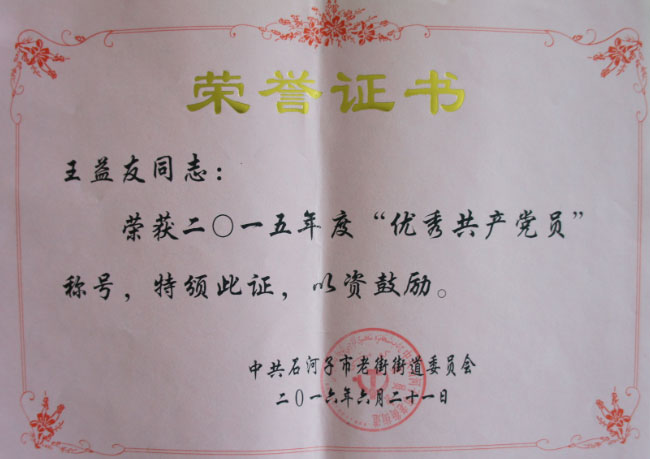 荣誉证书
王益友同志：
荣获二〇一五年度“优秀共产党员”
称号，特颁此证，以资鼓励。
中共石河子市老街街道委员会
二〇一六年六月二十一日